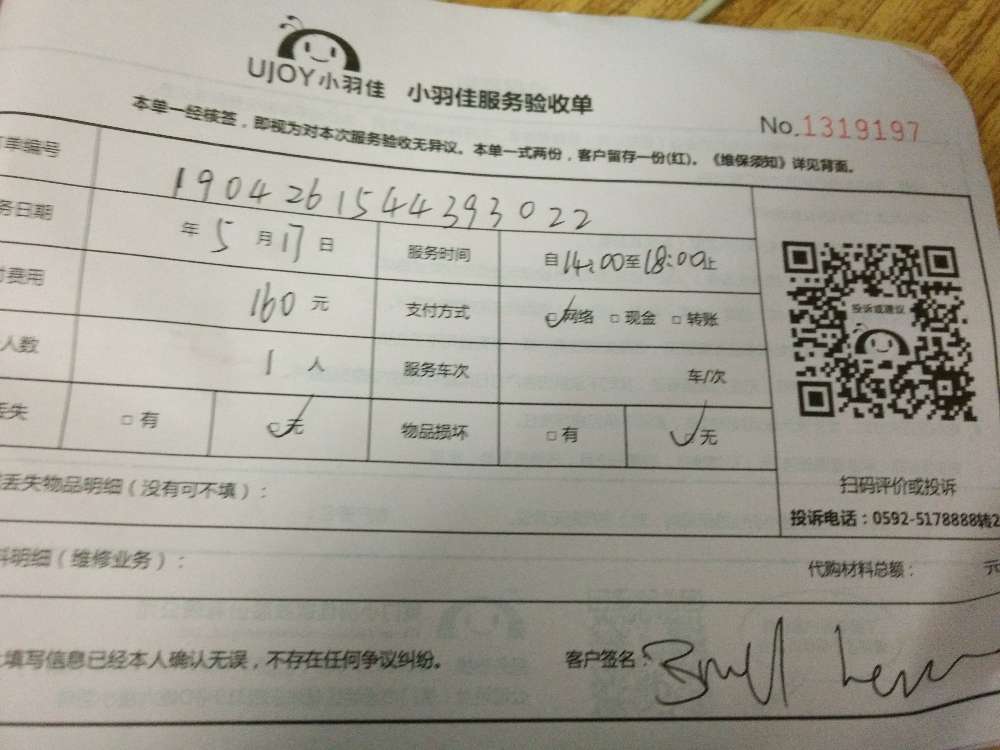 UJOY小羽佳 小羽佳服务验收单
No.1319197
本单一经核签，即视为对本次服务验收无异议。本单一式两份，客户留存一份(红)。《维保须知》详见背面。
单编号 190426154439​3022
务日期 年 5 月 17 日 服务时间 自 14:00 至 18:00 止
费用 160 元 支付方式 ☑网络 □现金 □转账
人数 1 人 服务车次 车/次
丢失 □有 ☑无 物品损坏 □有 ☑无
投诉或建议
扫码评价或投诉
投诉电话：0592-5178888转2
丢失物品明细（没有可不填）：
料明细（维修业务）： 代购材料总额： 元
填写信息已经本人确认无误，不存在任何争议纠纷。 客户签名：